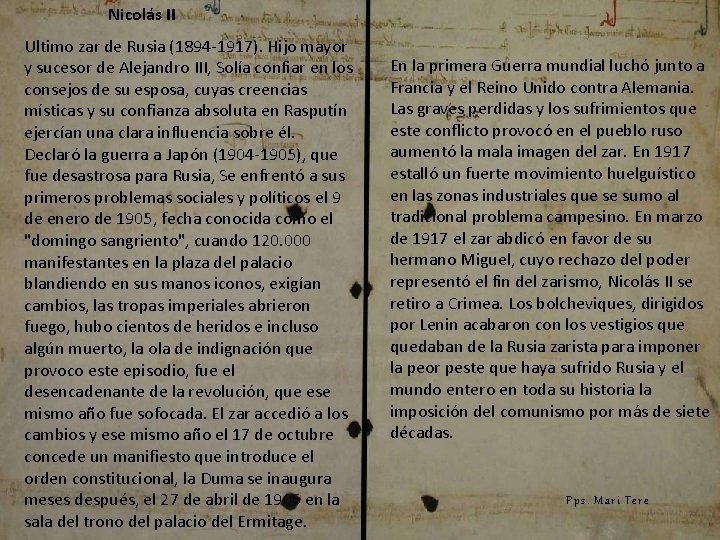 Nicolás II
Ultimo zar de Rusia (1894-1917). Hijo mayor
y sucesor de Alejandro III, Solía confiar en los
consejos de su esposa, cuyas creencias
místicas y su confianza absoluta en Rasputín
ejercían una clara influencia sobre él.
Declaró la guerra a Japón (1904-1905), que
fue desastrosa para Rusia, Se enfrentó a sus
primeros problemas sociales y políticos el 9
de enero de 1905, fecha conocida como el
"domingo sangriento", cuando 120.000
manifestantes en la plaza del palacio
blandiendo en sus manos iconos, exigían
cambios, las tropas imperiales abrieron
fuego, hubo cientos de heridos e incluso
algún muerto, la ola de indignación que
provoco este episodio, fue el
desencadenante de la revolución, que ese
mismo año fue sofocada. El zar accedió a los
cambios y ese mismo año el 17 de octubre
concede un manifiesto que introduce el
orden constitucional, la Duma se inaugura
meses después, el 27 de abril de en la
sala del trono del palacio del Ermitage.
En la primera Guerra mundial luchó junto a
Francia y el Reino Unido contra Alemania.
Las graves perdidas y los sufrimientos que
este conflicto provocó en el pueblo ruso
aumentó la mala imagen del zar. En 1917
estalló un fuerte movimiento huelguístico
en las zonas industriales que se sumo al
tradicional problema campesino. En marzo
de 1917 el zar abdicó en favor de su
hermano Miguel, cuyo rechazo del poder
representó el fin del zarismo, Nicolás II se
retiro a Crimea. Los bolcheviques, dirigidos
por Lenin acabaron con los vestigios que
quedaban de la Rusia zarista para imponer
la peor peste que haya sufrido Rusia y el
mundo entero en toda su historia la
imposición del comunismo por más de siete
décadas.
Pps. Mari Tere